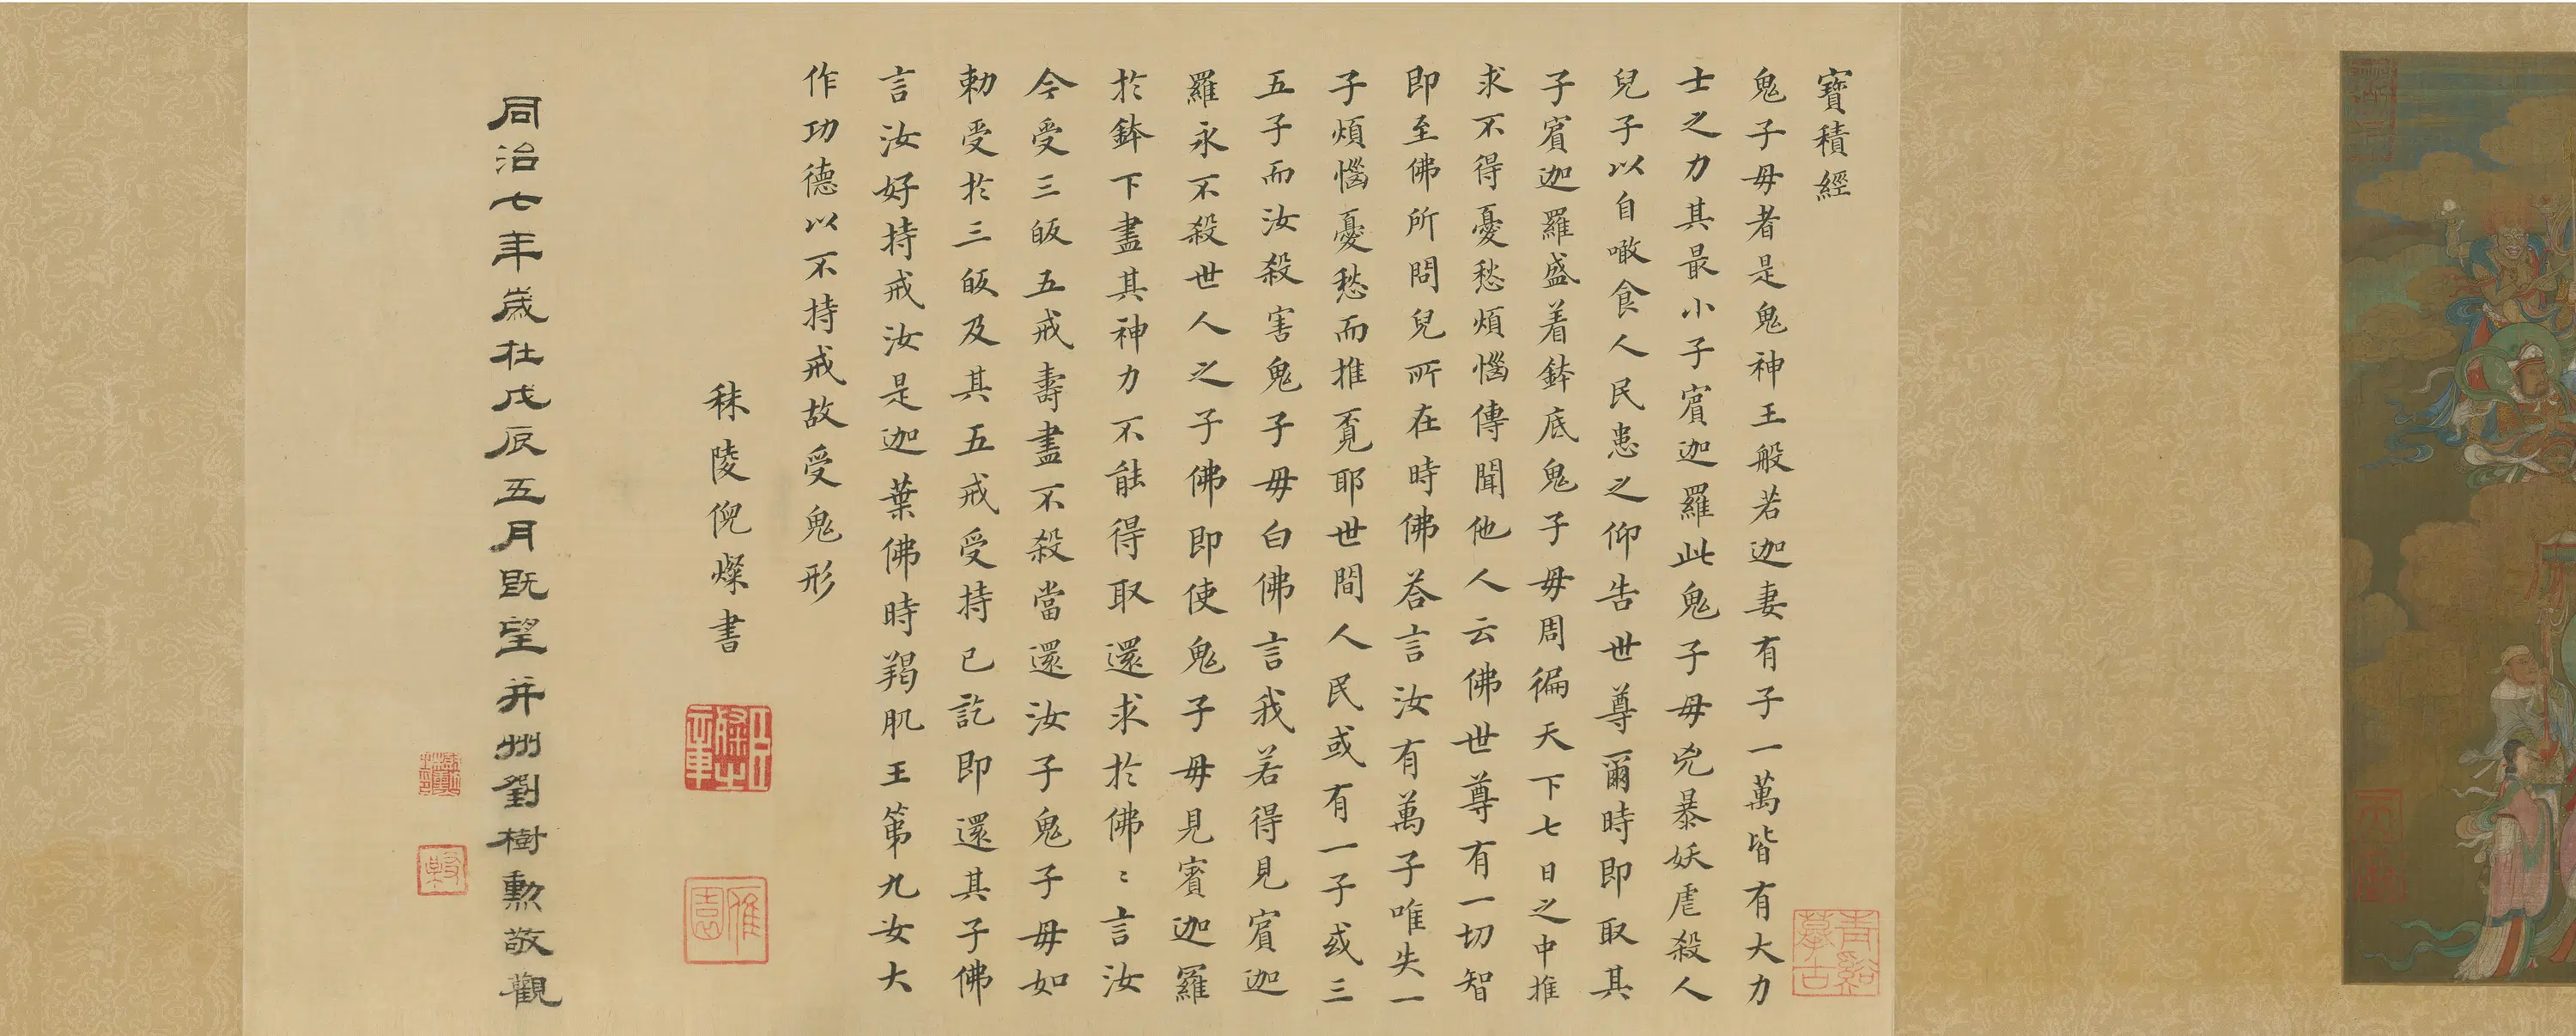 寶積經
鬼子毋者是鬼神王般若迦妻有子一萬皆有大力
士之力其最小子賔迦羅此鬼子毋兇暴妖虐殺人
兒子以自噉食人民患之仰告世尊爾時即取其
子賔迦羅盛着鉢底鬼子毋周徧天下七日之中推
求不得憂愁煩惱傳聞他人云佛世尊有一切智
即至佛所問兒所在時佛荅言汝有萬子唯失一
子煩惱憂愁而推覔耶世間人民或有一子或三
五子而汝殺害鬼子毋白佛言我若得見賔迦
羅永不殺世人之子佛即使鬼子毋見賔迦羅
於鉢下盡其神力不能得取還求於佛〻言汝
今受三皈五戒壽盡不殺當還汝子鬼子毋如
勅受於三皈及其五戒受持已訖即還其子佛
言汝好持戒汝是迦葉佛時羯肌王第九女大
作功德以不持戒故受鬼形
秣陵倪燦書
雁園
同治七年歲在戊辰五月既望并州劉樹勲敬觀
青谿